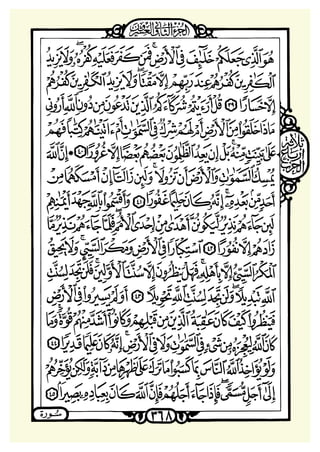 الجزء الثاني والعشرون
هُوَ الَّذِي جَعَلَكُمْ خَلَٰٓئِفَ فِي الْأَرْضِ فَمَنْ كَفَرَ فَعَلَيْهِ كُفْرُهُ وَلَا يَزِيدُ
الْكَٰفِرِينَ كُفْرُهُمْ عِنْدَ رَبِّهِمْ إِلَّا مَقْتًا وَلَا يَزِيدُ الْكَٰفِرِينَ كُفْرُهُمْ
إِلَّا خَسَارًا ٣٩ قُلْ أَرَءَيْتُمْ شُرَكَآءَكُمُ الَّذِينَ تَدْعُونَ مِنْ دُونِ اللَّهِ أَرُونِي
مَاذَا خَلَقُوا مِنَ الْأَرْضِ أَمْ لَهُمْ شِرْكٌ فِي السَّمَٰوَٰتِ أَمْ ءَاتَيْنَٰهُمْ كِتَٰبًا فَهُمْ
عَلَىٰ بَيِّنَتٍ مِنْهُ بَلْ إِنْ يَعِدُ الظَّٰلِمُونَ بَعْضُهُمْ بَعْضًا إِلَّا غُرُورًا ٤٠ إِنَّ اللَّهَ
يُمْسِكُ السَّمَٰوَٰتِ وَالْأَرْضَ أَنْ تَزُولَا وَلَئِنْ زَالَتَا إِنْ أَمْسَكَهُمَا مِنْ
أَحَدٍ مِنْ بَعْدِهِ إِنَّهُ كَانَ حَلِيمًا غَفُورًا ٤١ وَأَقْسَمُوا بِاللَّهِ جَهْدَ أَيْمَٰنِهِمْ
لَئِنْ جَآءَهُمْ نَذِيرٌ لَيَكُونُنَّ أَهْدَىٰ مِنْ إِحْدَى الْأُمَمِ فَلَمَّا جَآءَهُمْ نَذِيرٌ مَا
زَادَهُمْ إِلَّا نُفُورًا ٤٢ اسْتِكْبَارًا فِي الْأَرْضِ وَمَكْرَ السَّيِّئِ وَلَا يَحِيقُ
الْمَكْرُ السَّيِّئُ إِلَّا بِأَهْلِهِ فَهَلْ يَنْظُرُونَ إِلَّا سُنَّتَ الْأَوَّلِينَ فَلَنْ تَجِدَ لِسُنَّتِ
اللَّهِ تَبْدِيلًا وَلَنْ تَجِدَ لِسُنَّتِ اللَّهِ تَحْوِيلًا ٤٣ أَوَلَمْ يَسِيرُوا فِي الْأَرْضِ
فَيَنْظُرُوا كَيْفَ كَانَ عَٰقِبَةُ الَّذِينَ مِنْ قَبْلِهِمْ وَكَانُوا أَشَدَّ مِنْهُمْ قُوَّةً وَمَا
كَانَ اللَّهُ لِيُعْجِزَهُ مِنْ شَيْءٍ فِي السَّمَٰوَٰتِ وَلَا فِي الْأَرْضِ إِنَّهُ كَانَ عَلِيمًا قَدِيرًا ٤٤
وَلَوْ يُؤَاخِذُ اللَّهُ النَّاسَ بِمَا كَسَبُوا مَا تَرَكَ عَلَىٰ ظَهْرِهَا مِنْ دَآبَّةٍ وَلَٰكِنْ يُؤَخِّرُهُمْ
إِلَىٰ أَجَلٍ مُسَمًّى فَإِذَا جَآءَ أَجَلُهُمْ فَإِنَّ اللَّهَ كَانَ بِعِبَادِهِ بَصِيرًا ٤٥
٣٦٨
سُورة